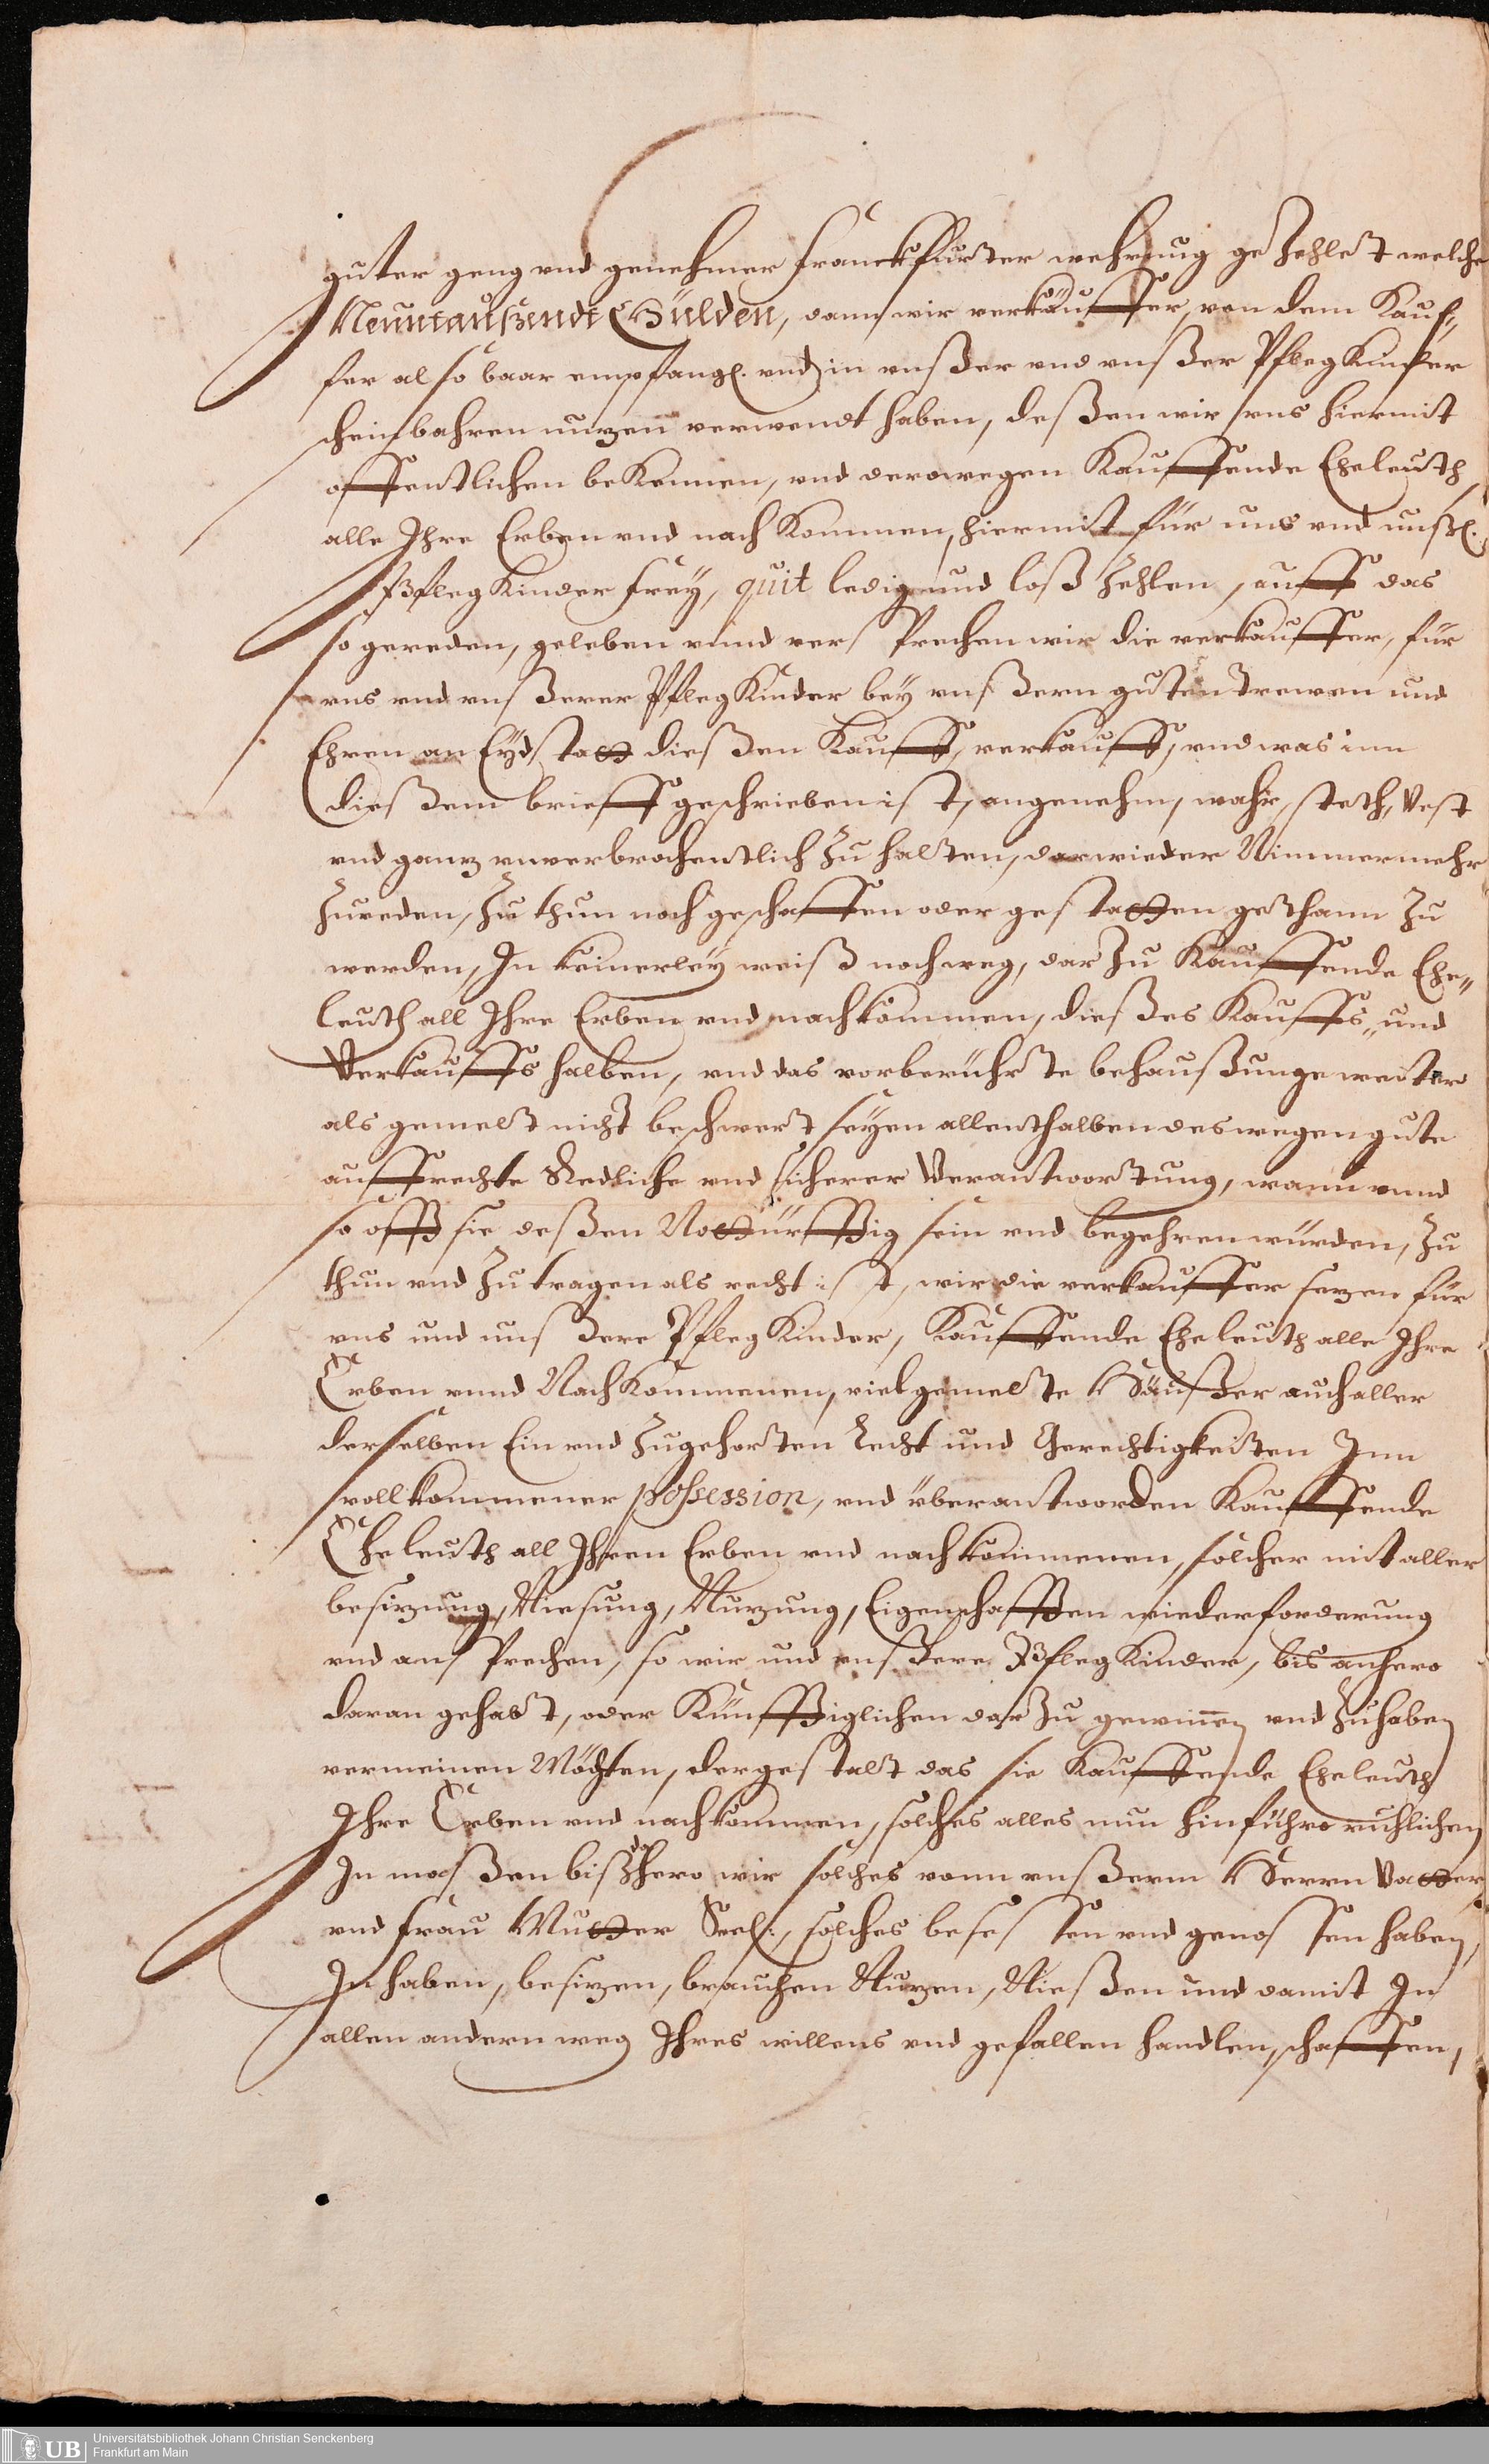 guter geng vnd genehmer Franckfurter wehrung gezehlet welche
Neuntaußendt Gülden, dann wir verkäuffer, von dem Kauf„
fer also baar empfangen. vnd in vnßer vnd vnßer Pfleg Kinder
scheinbahren nuzen verwendt haben, deßen wir vns hiermit
offentlichen beKennen, vnd derowegen Kauffende Eheleuth,
alle Ihre Erben vnd nachKommen, hiermit für uns vnd unßer.
Pfleg Kinder frey, quit ledig und loß Zehlen, auff das
so gereden, geleben vnnd versprechen wir die verkäuffer, für
vns vnd vnßerer Pfleg Kinder bey vnßern guten Trewen und
Ehren an Eydstatt dießen Kauff, verkauff, vnd was inn
dießem brieff geschrieben ist, angenehm, wahr, steth, Vest
vnd ganz vnverbrochentlich Zu halten, darwieder Nimmermehr
Zureden, Zu thun noch geschaffen oder gestatten gethann Zu
werden, In keinerley weiß noch weg, dar Zu Kauffende Ehe„
leuth all Ihre Erben vnd nachkommen, dießes Kauffs„ und
Verkauffs halben, vnd das vorberührte behaußunge weiter
als gemelt nicht beschwert seyen allenthalben deswegen gute
auffrechte Redliche vnd sicherer Verantwortung, wann vnnd
so offt sie deßen Nottürfftig sein vnd begehren würden, Zu
thun vnd Zu tragen als recht ist, wir die verkauffer sezen für
vns und unsere Pfleg Kinder, Kauffende Eheleuth alle Ihre
Erben vnnd NachKommenen, vielgemelte Häußer auch aller
derselben Ein vnd Zugehorten Recht und Gerechtigkeiten Inn
vollkommener possession, vnd überantworden Kauffende
Eheleuth all Ihren Erben vnd nachkommenen, solcher mit aller
besizung, Niesung, Nuzung, Eigenschafften wiederforderung
vnd ansprechen, so wir und vnßere Pfleg Kinder, bis anhero
daran gehabt, oder Künfftiglichen dar Zu gewinnen vnd Zuhaben
vermeinen Möchten, dergestalt das sie Kauffende Eheleuth
Ihre Erben vnd nachkommen, solches alles nun hinführo ruhlichen
In maßen bißdahero wir solches vonn vnßerm Herrn Vatter
vnd frau Mutter Seel:, solches besessen vnd genossen haben,
In haben, besizen, brauchen Nuzen, Nießen und damit In
allen andern weg Ihres willens vnd gefallen handlen, schaffen,
UB Universitätsbibliothek Johann Christian Senckenberg
Frankfurt am Main